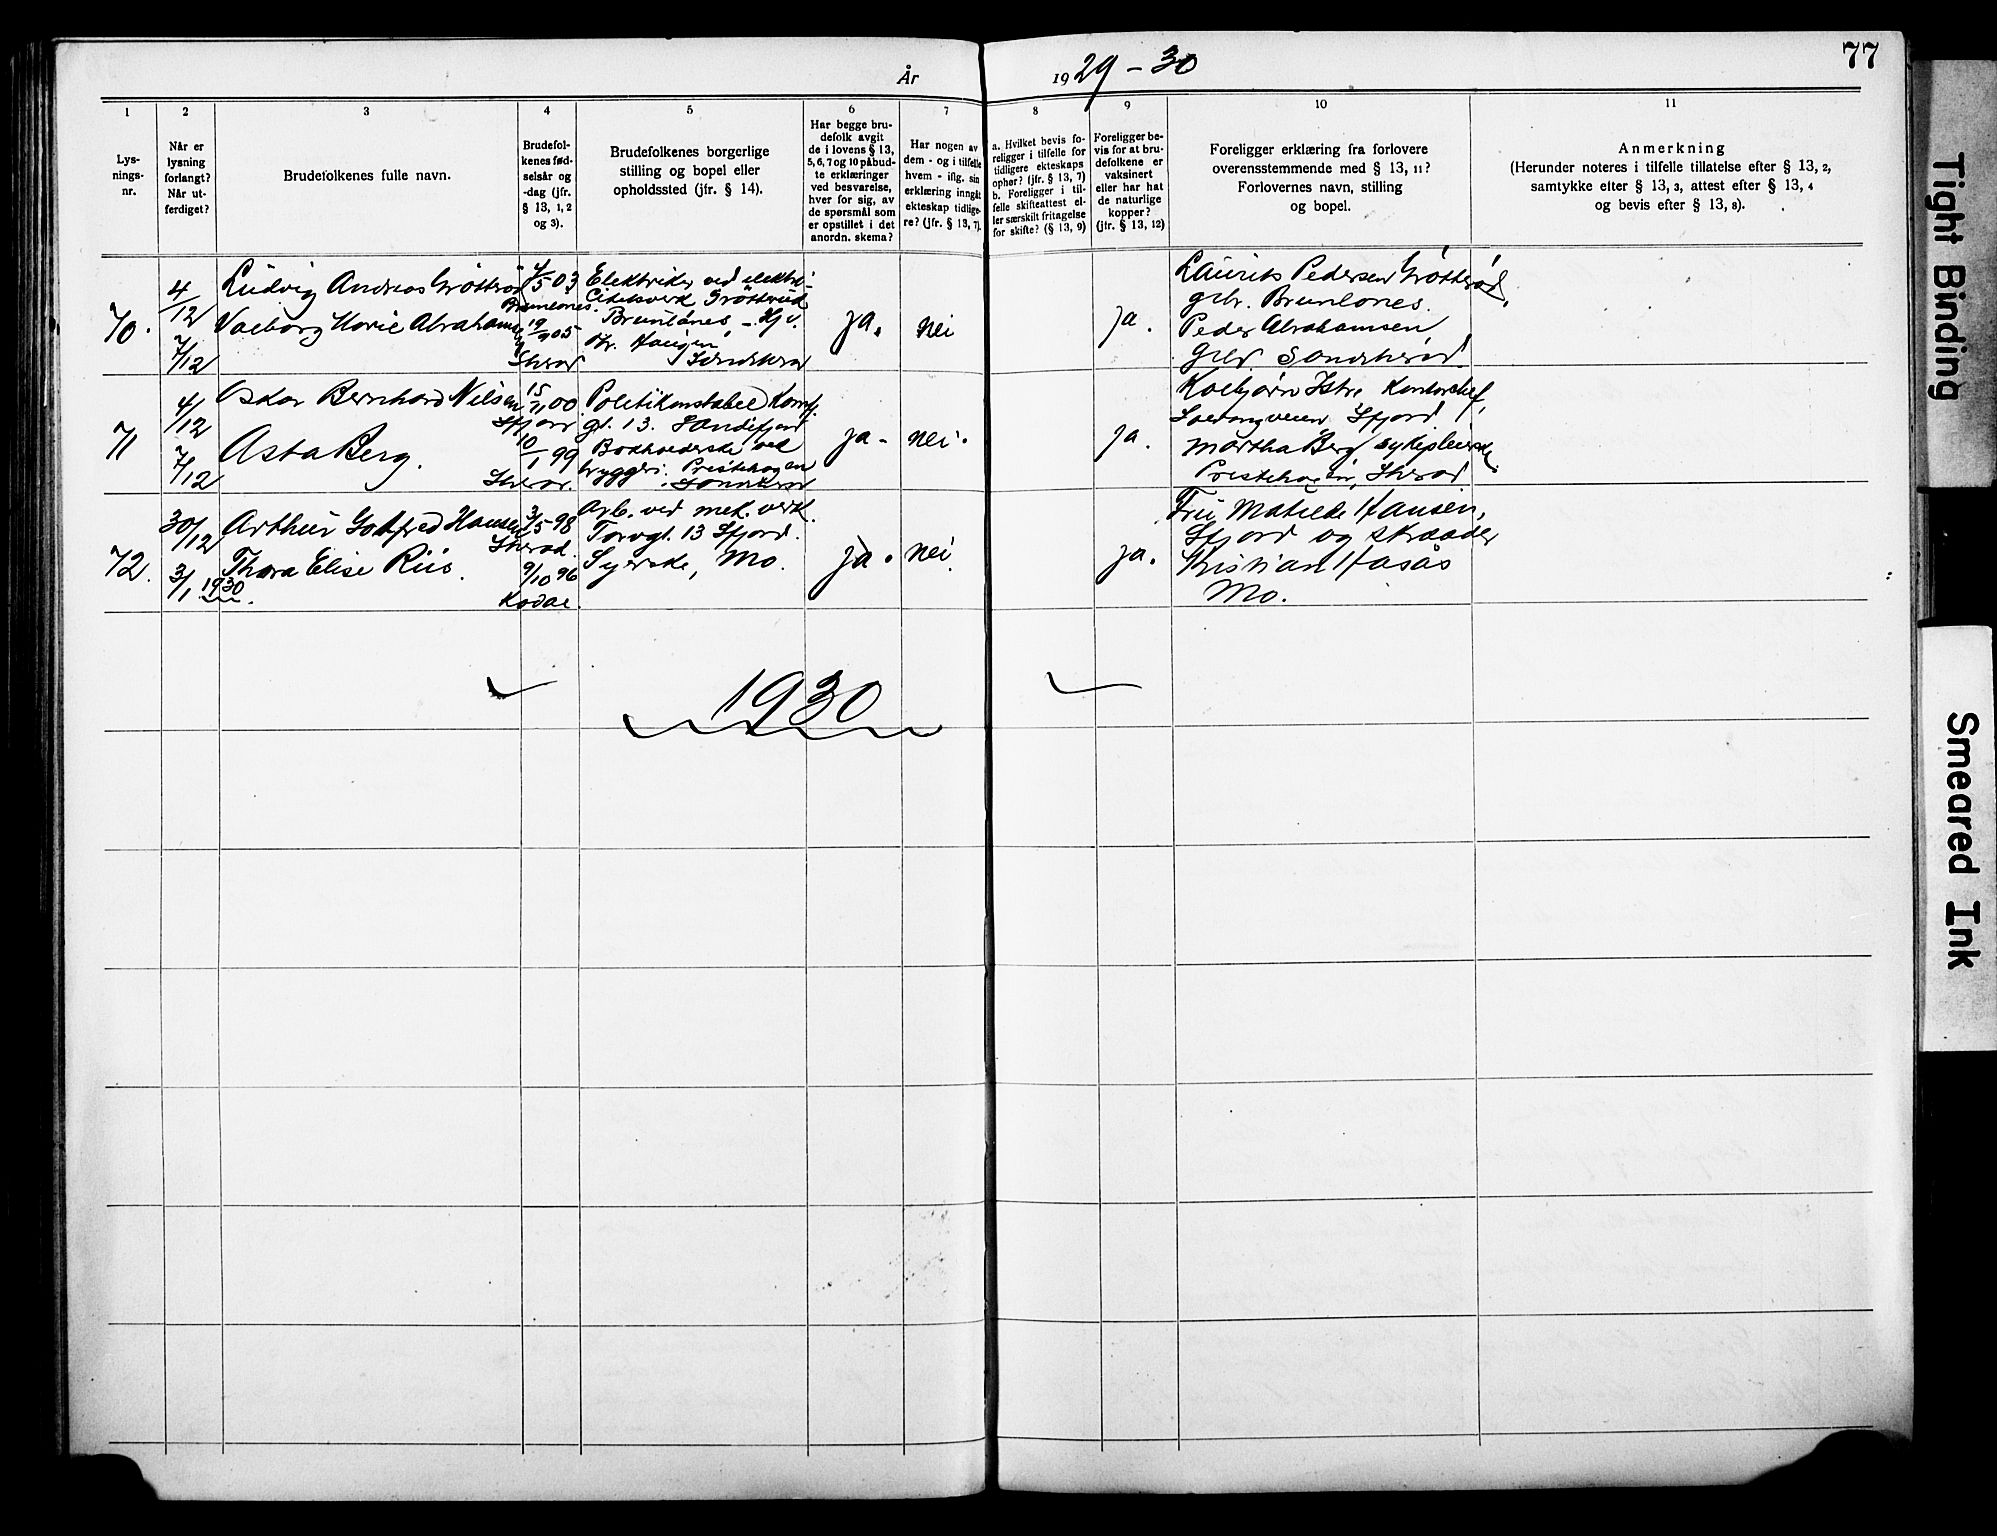 77
År 1929-30
1
2
3
4
5
6
7
8
9
10
11
Lys-
nings-
nr.
Når er
lysning
forlangt?
Når ut-
ferdiget?
Brudefolkenes fulle navn.
Brudefol-
kenes fød-
selsår og
-dag (jfr.
§ 13, 1, 2
og 3).
Brudefolkenes borgerlige
stilling og bopel eller
opholdssted (jfr. § 14).
Har begge bru-
defolk avgit
de i lovens § 13,
5, 6, 7 og 10 påbud-
te erklæringer
ved besvarelse,
hver for sig, av
de spørsmål som
er opstillet i det
anordn. skema?
Har nogen av
dem - og i tilfelle
hvem - iflg. sin
erklæring inngåt
ekteskap tidlige-
re? (jfr. § 13, 7).
a. Hvilket bevis fo-
religger i tilfelle for
tidligere ekteskaps
ophør? (jfr. § 13, 7)
b. Foreligger i til-
felle skifteattest el-
ler særskilt fritagelse
for skifte? (§ 13, 9)
Foreligger be-
vis for at bru-
defolkene er
vaksinert
eller har hat
de naturlige
kopper?
(jfr. § 13, 12)
Foreligger erklæring fra forlovere
overensstemmende med § 13, 11?
Forlovernes navn, stilling
og bopel.
Anmerkning
(Herunder noteres i tilfelle tillatelse efter § 13, 2,
samtykke efter § 13, 3, attest efter § 13, 4
og bevis efter § 13, 8).
70.
4/12
7/12
Ludvig Andreas Grøtterød
Valborg Marie Abrahamsen
/5 03
Brunlanes.
19/9 05
Skerad
Elektriker ved elektri-
citetsverk Grøtterød
Brunlanes, - Hjv.
Haugen,
Sandeherad
ja.
nei
ja.
Laurits Pedersen Grøtterød,
gbr. Brunlanes.
Peder Abrahamsen
gbr Sandeherad
71
4/12
7/12
Oskar Bernhard Nilsen
Asta Berg.
15/11 00
Sfjord
10/1 99
Sherad.
Politikonstabel Kom.
gt. 13. Sandefjord
Bokholderske ved
bryggeri. Prestehagen
Sandeherad
ja -
nei.
ja.
Kolbjørn Istre Kontorchef,
Sfjord
Martha Berg sykepleierske
Prestehagen, Sherad
72.
30/12
3/1 1930.
Arthur Gotfred Hansen
Thora Elise Riis.
3/5 98
Sherad.
9/10 96
Kodal.
Arb. ved mek. verk.
Torvgt. 13 Sfjord.
Syerske, Mo.
ja.
nei.
ja.
Fru Matilde Hansen,
Sfjord og skrædder
Kristian Hasås
Mo.
1930
Tight Binding
Smeared Ink